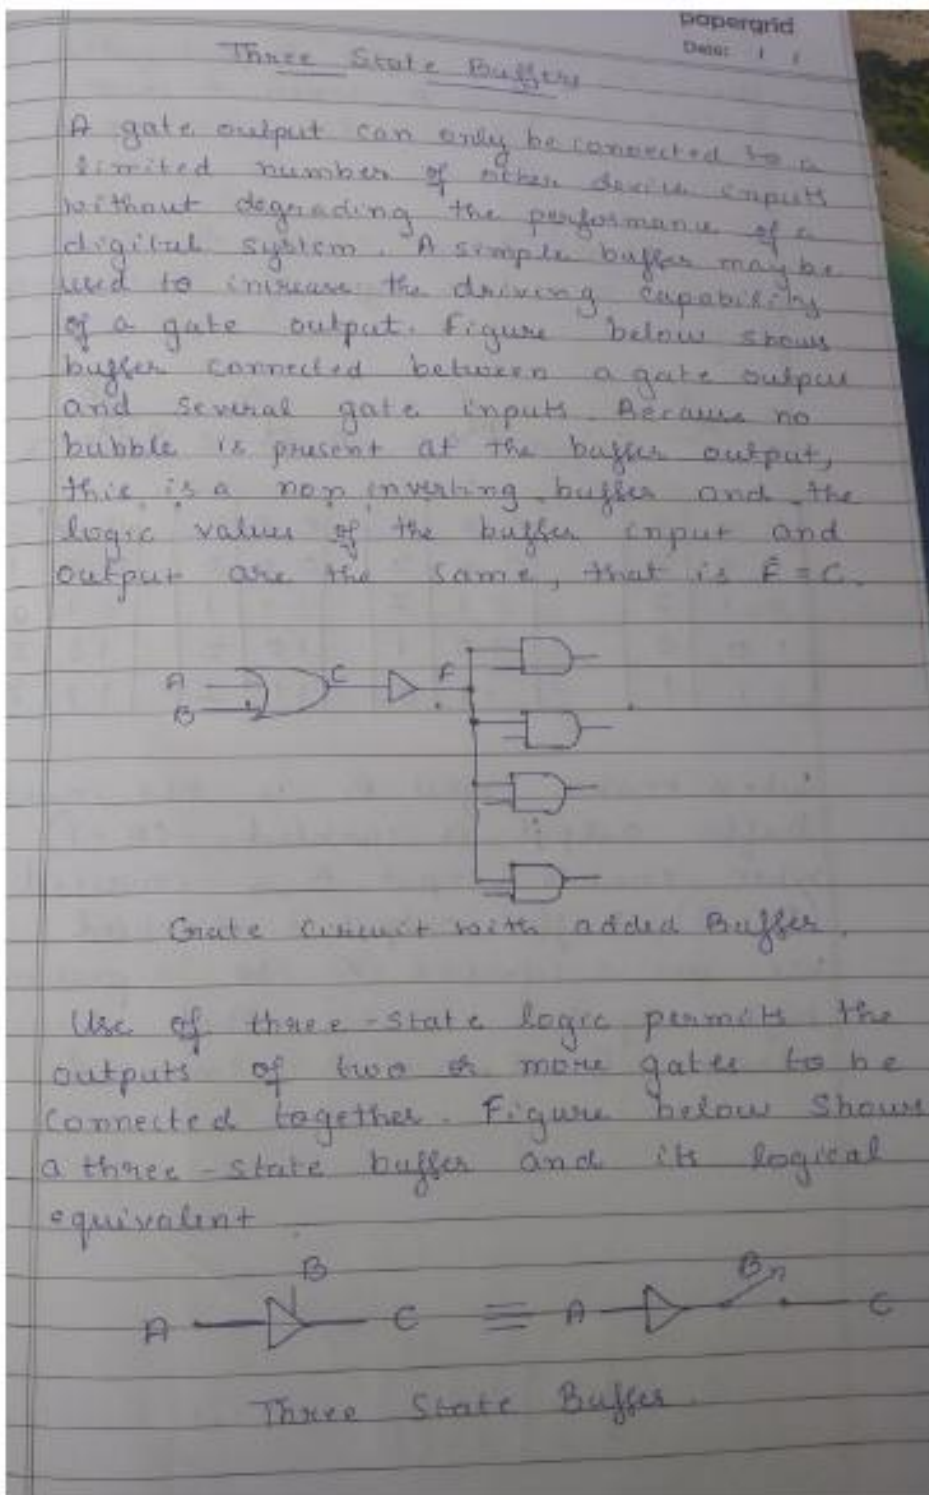 papergrid
Date: / /
Three State Buffers
A gate output can only be connected to a
limited number of other device inputs
without degrading the performance of a
digital system. A simple buffer may be
used to increase the driving capability
of a gate output. Figure below shows
buffer connected between a gate output
and several gate inputs. Because no
bubble is present at the buffer output,
this is a non inverting buffer and the
logic values of the buffer input and
output are the same, that is F = C.
A
B
C
F
Gate circuit with added Buffer.
Use of three-state logic permits the
outputs of two or more gates to be
connected together. Figure below shows
a three-state buffer and its logical
equivalent
B
B
A C ≡ A C
Three State Buffer.